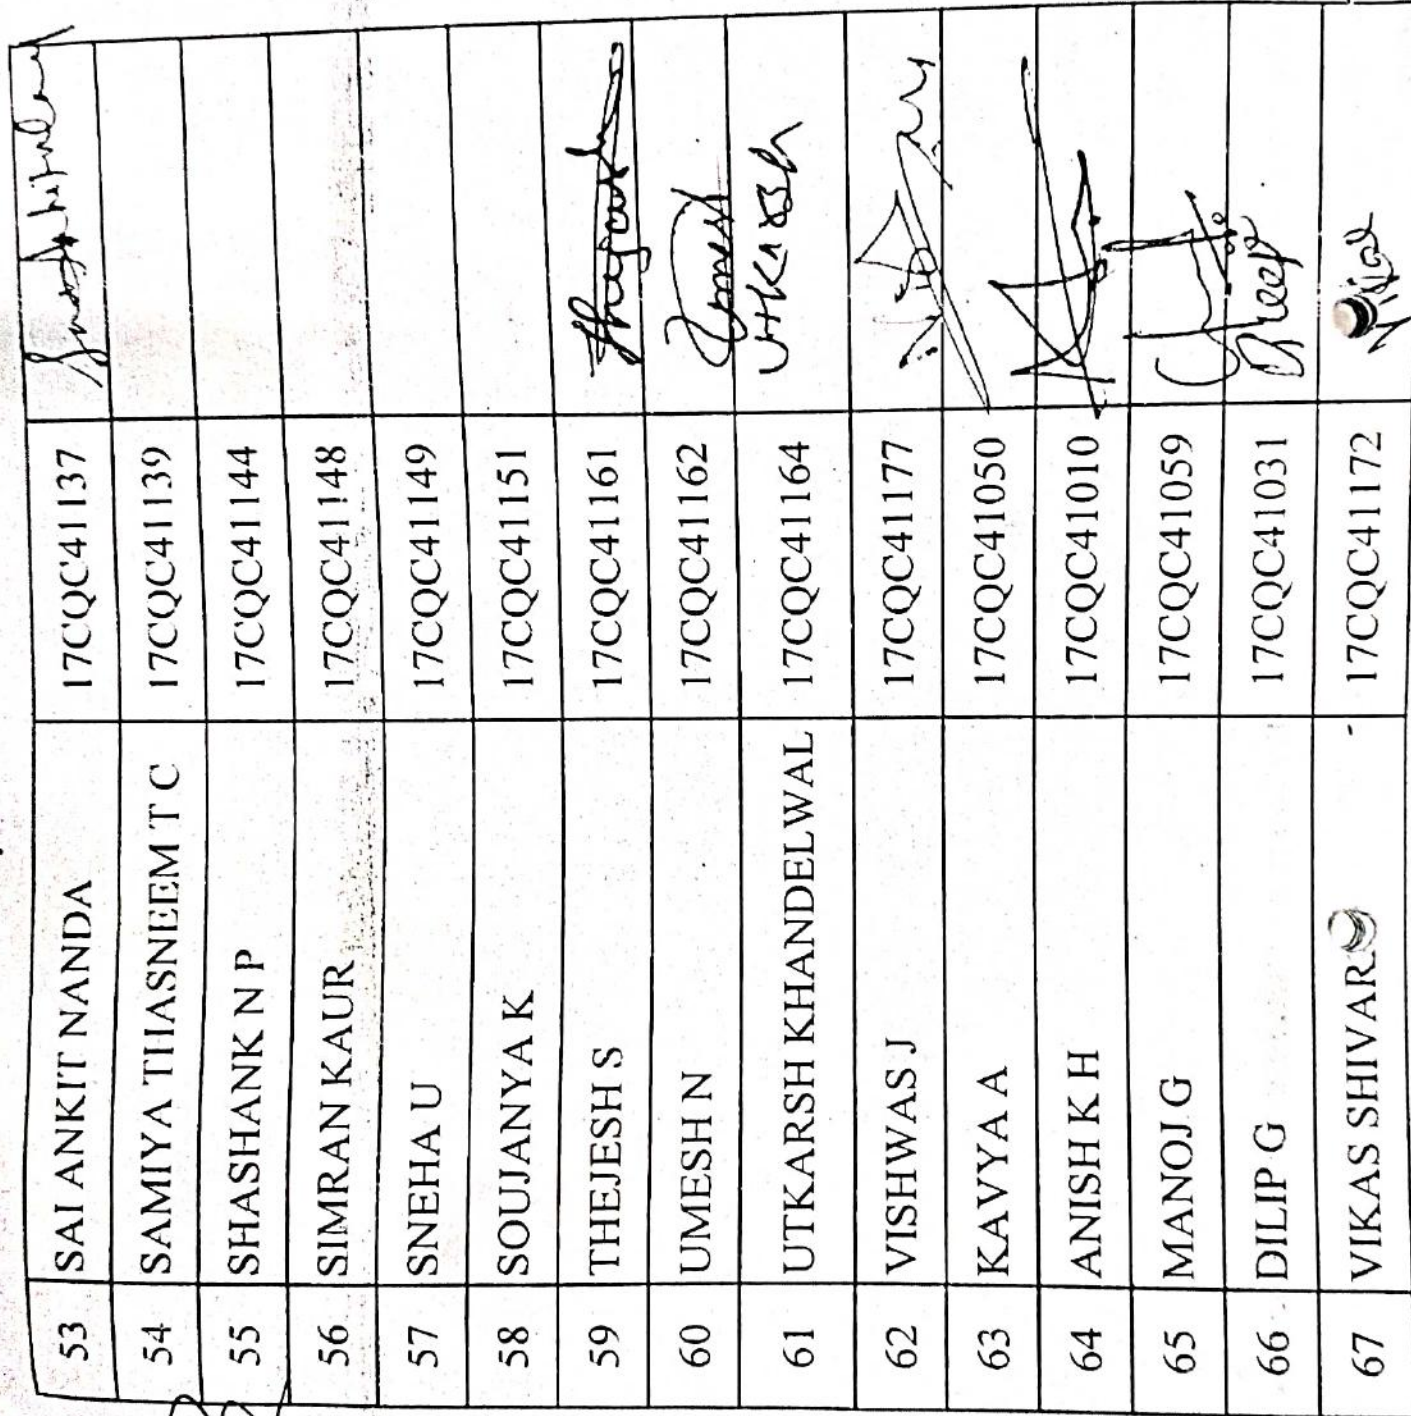 53 SAI ANKIT NANDA 17CQC41137
54 SAMIYA THASNEEM T C 17CQC41139
55 SHASHANK N P 17CQC41144
56 SIMRAN KAUR 17CQC41148
57 SNEHA U 17CQC41149
58 SOUJANYA K 17CQC41151
59 THEJESH S 17CQC41161
60 UMESH N 17CQC41162 Umesh
61 UTKARSH KHANDELWAL 17CQC41164 UTKARSH
62 VISHWAS J 17CQC41177
63 KAVYA A 17CQC41050
64 ANISH K H 17CQC41010
65 MANOJ G 17CQC41059
66 DILIP G 17CQC41031
67 VIKAS SHIVAR 17CQC41172